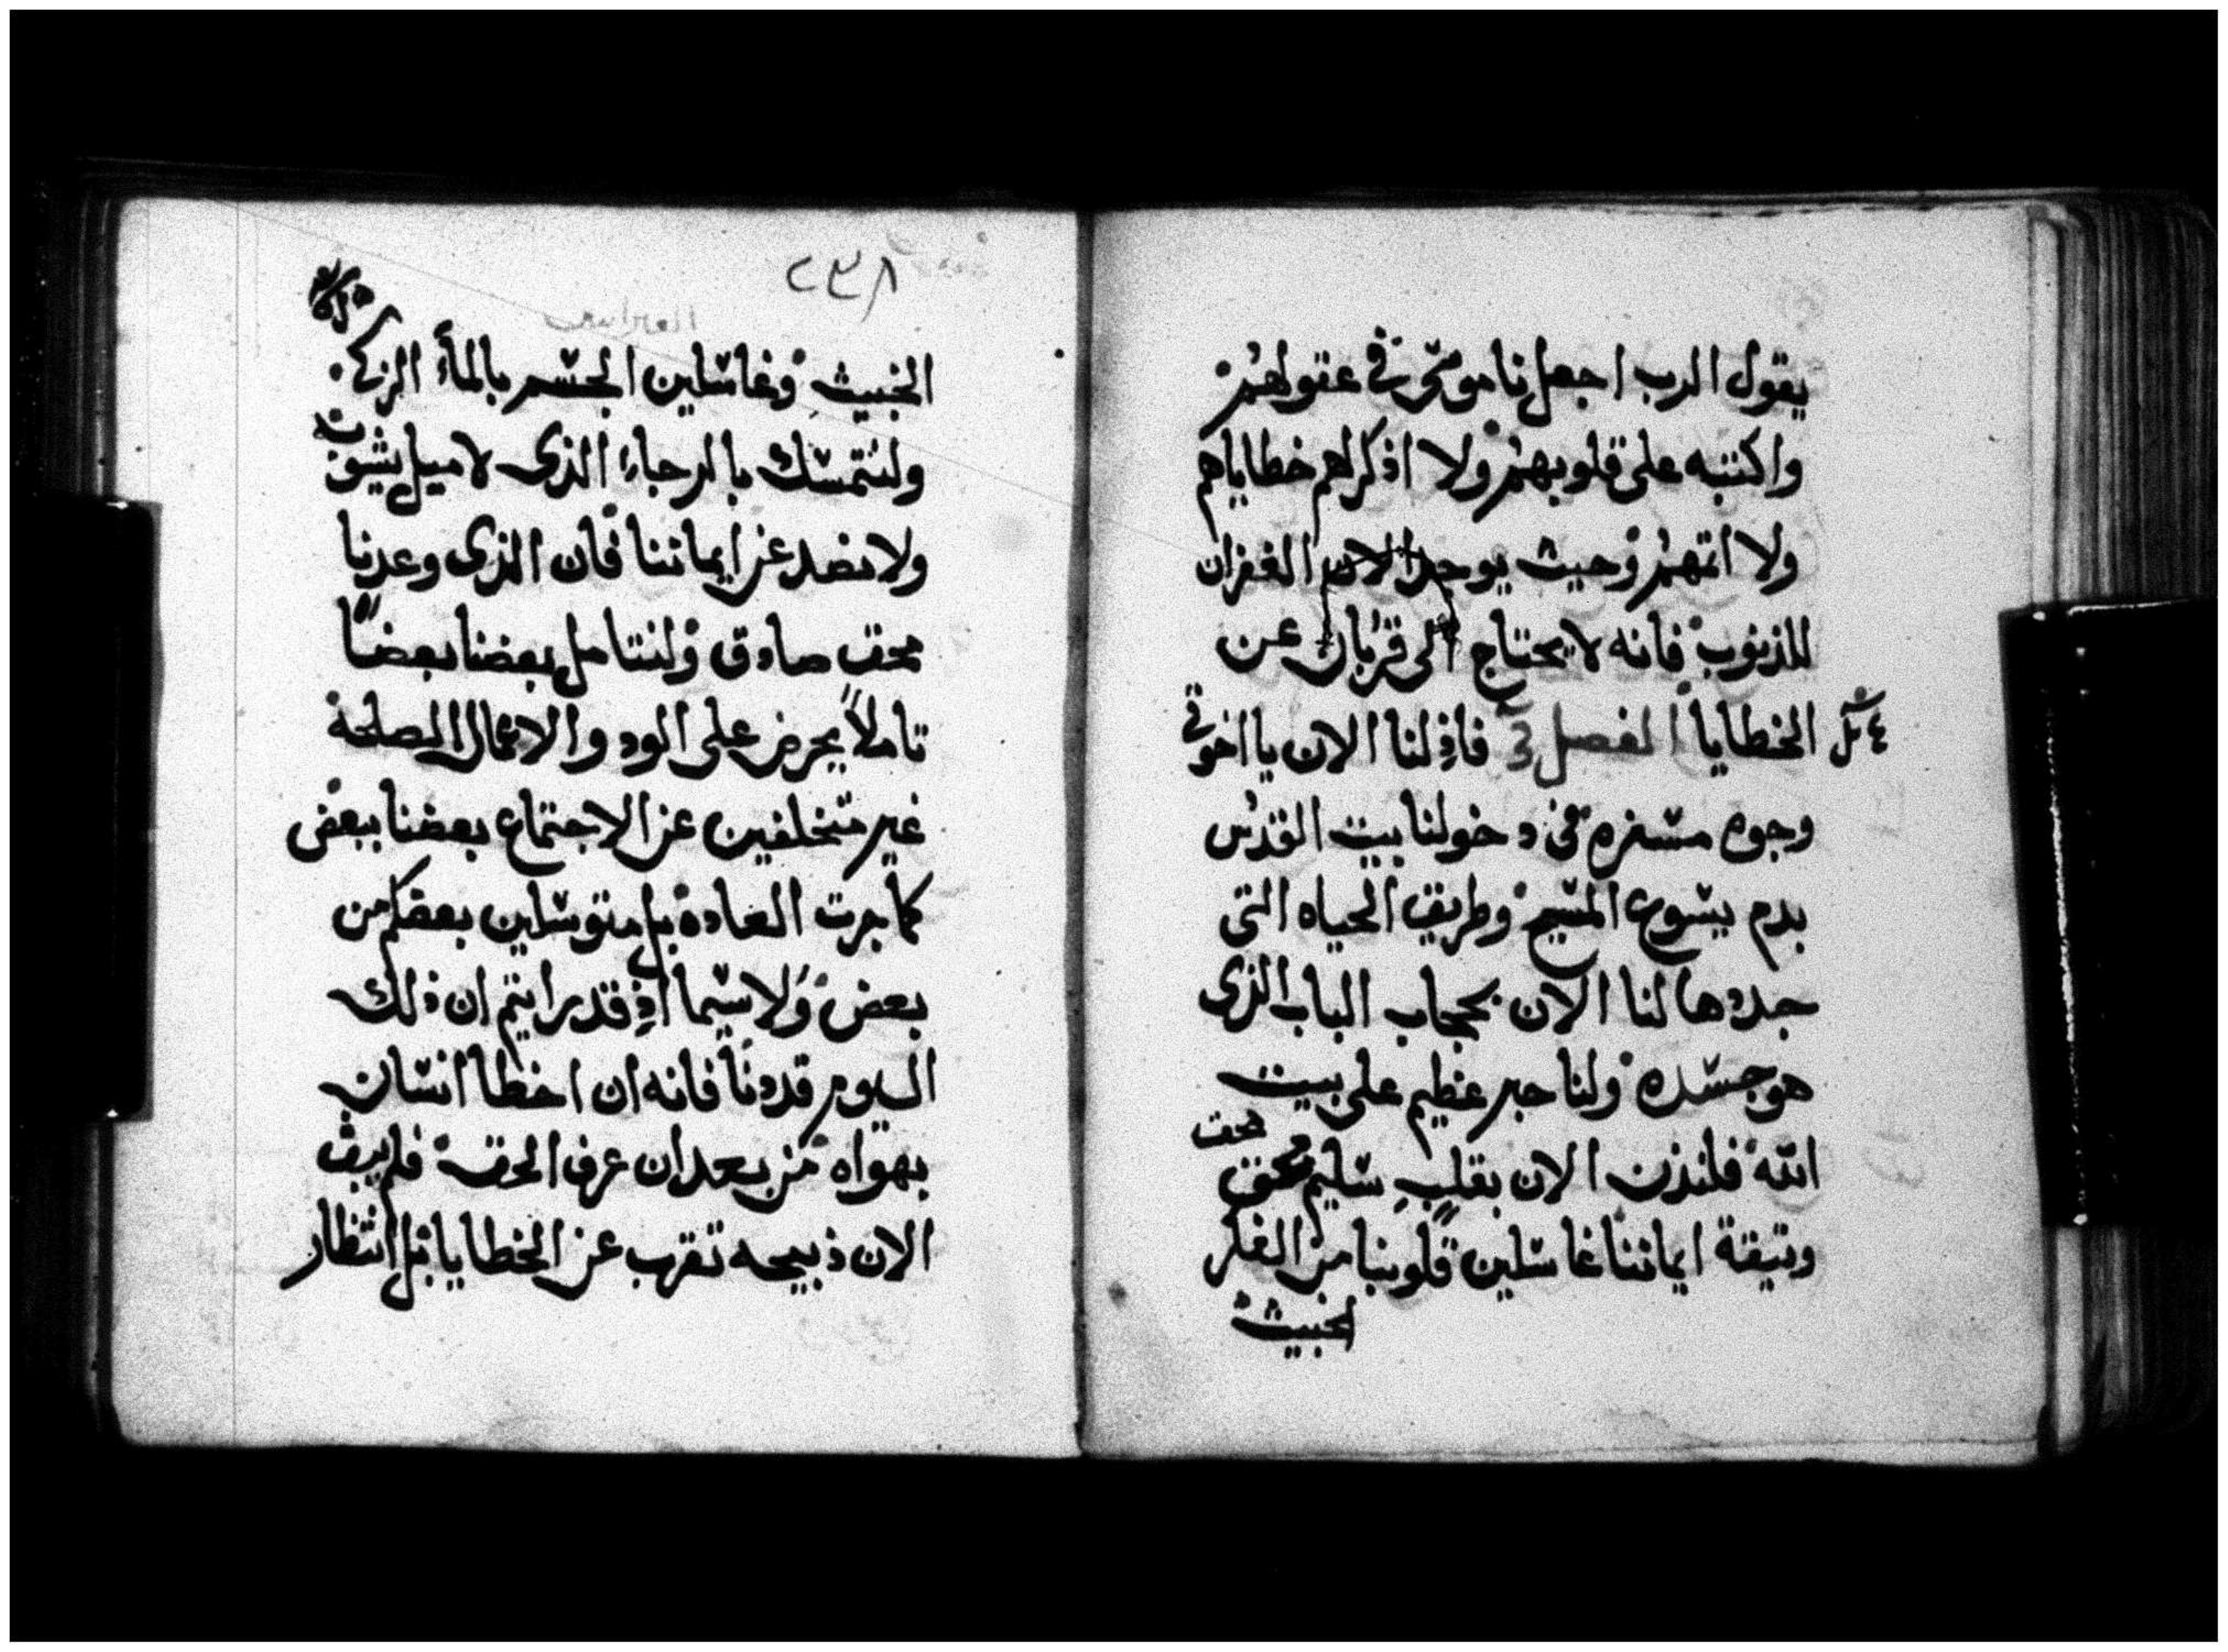 يقول الرب اجعل ناموسى فى عقولهم
واكتبه على قلوبهم ولا اذكر لهم خطاياهم
ولا اثمهم وحيث يوجد الان الغفران
للذنوب فانه لا يحتاج الى قربان عن
الخطايا الفصل فاذ لنا الان يا اخوتى
وجوه مسفره فى دخولنا بيت القدس
بدم يسوع المسيح وطريق الحياه التى
جددها لنا الان بحجاب الباب الذى
هو جسده ولنا حبر عظيم على بيت
الله فلندن الان بقلب سليم محق
وثيقة ايماننا غاسلين قلوبنا من الفكر
الخبيث
٢٣٨
العبرانيين
الخبيث وغاسلين الجسم بالماء الزكى
ولنتمسك بالرجاء الذى لا ميل يشوبه
ولا نضد عن ايماننا فان الذى وعدنا
محق صادق ولنتامل بعضنا بعضا
تاملا يحرض على الود والاعمال الصلحة
غير متخلفين عن الاجتماع بعضنا ببعض
كما جرت العادة بل متوسلين بعضكم من
بعض ولا سيما اذ قد رايتم ان ذلك
اليوم قد دنا فانه ان اخطا انسان
بهواه من بعد ان عرف الحق فلم يبق
الان ذبيحه تقرب عن الخطايا بل انتظار